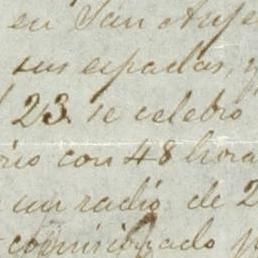 en San Ange
sus espadas, y
23 se celebró
rio con 48 hora
un radio de 2
comisionado p